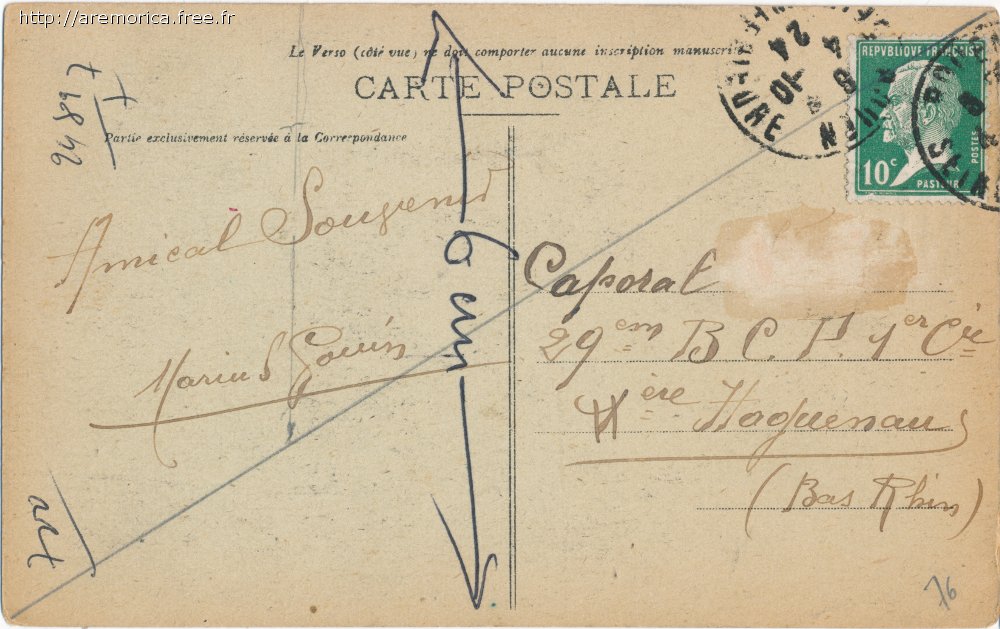 http://aremorica.free.fr
Le Verso (côté vue) ne doit comporter aucune inscription manuscri
CARTE POSTALE
Partie exclusivement réservée à la Correspondance
9489 7
Amical Souvenir
Marius Gouin
6 cm
art
REPVBLIQUE FRANÇAISE
10 c
POSTES
PASTEUR
Caporal
29em B C P. 1er Cie
Haguenau
(Bas Rhin)
76